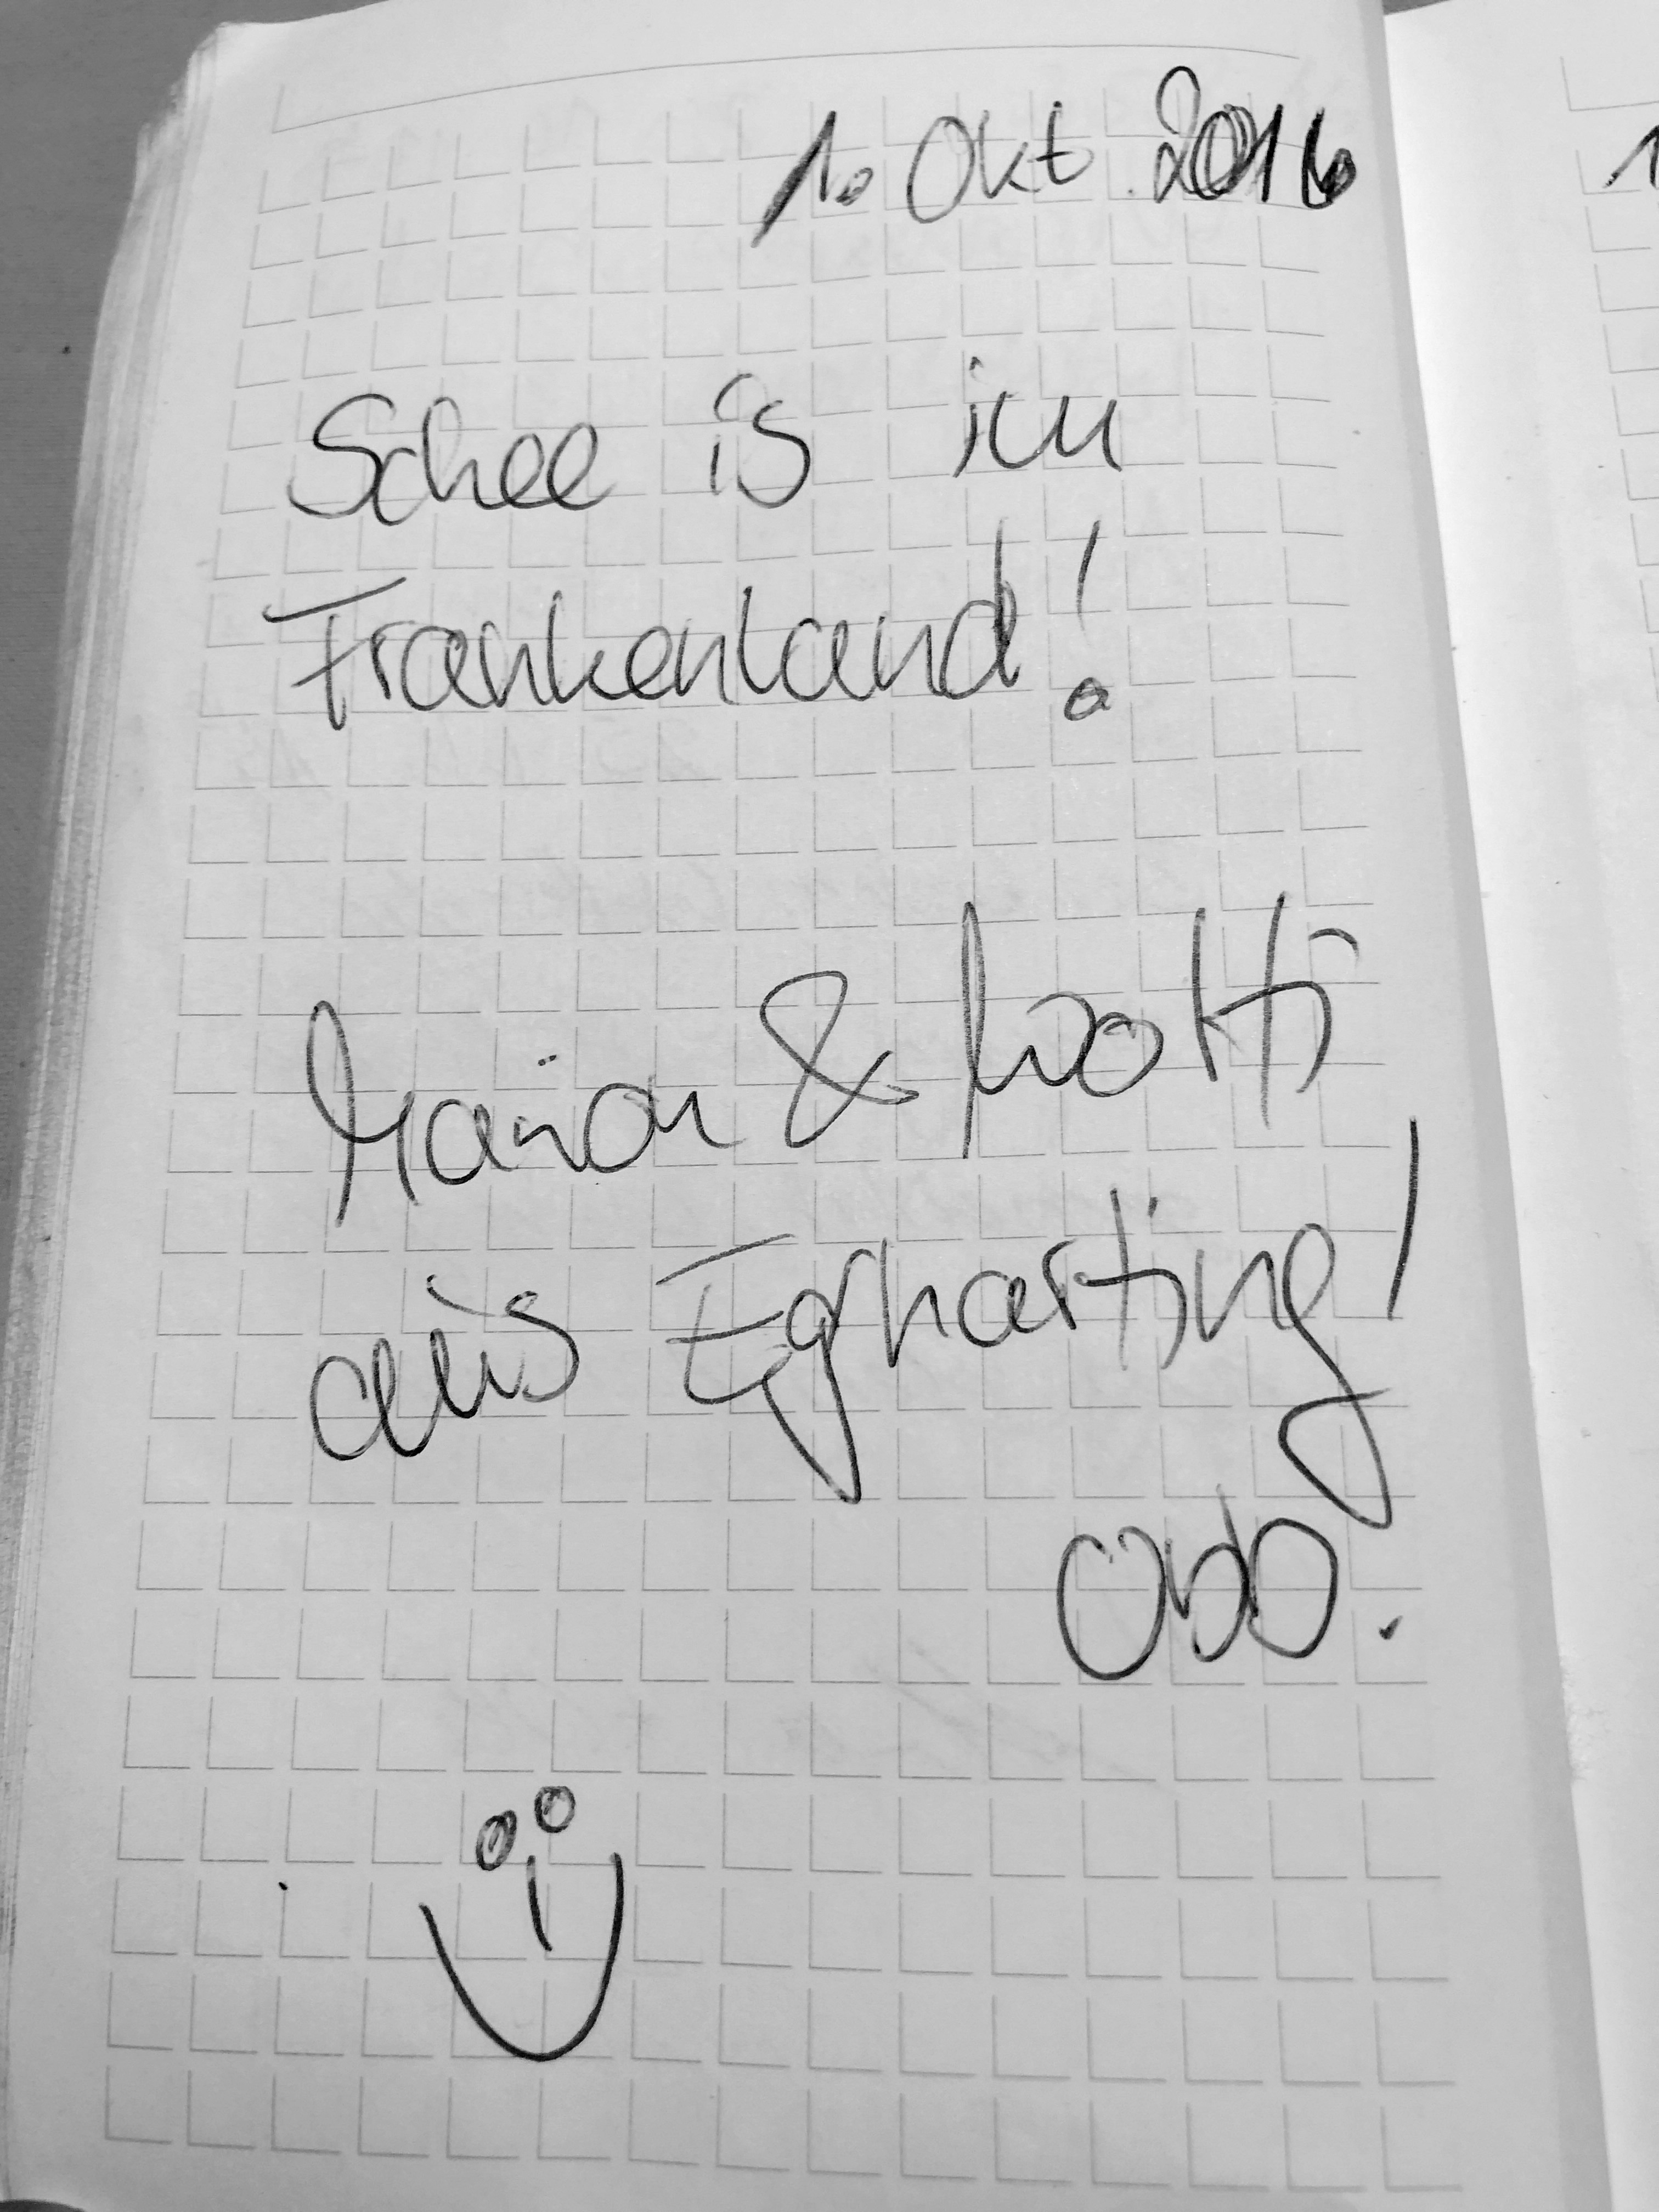 1. Okt. 2016
Schee is im
Frankenland!
Marion & Wotti
aus Egharting!
Obb.
1